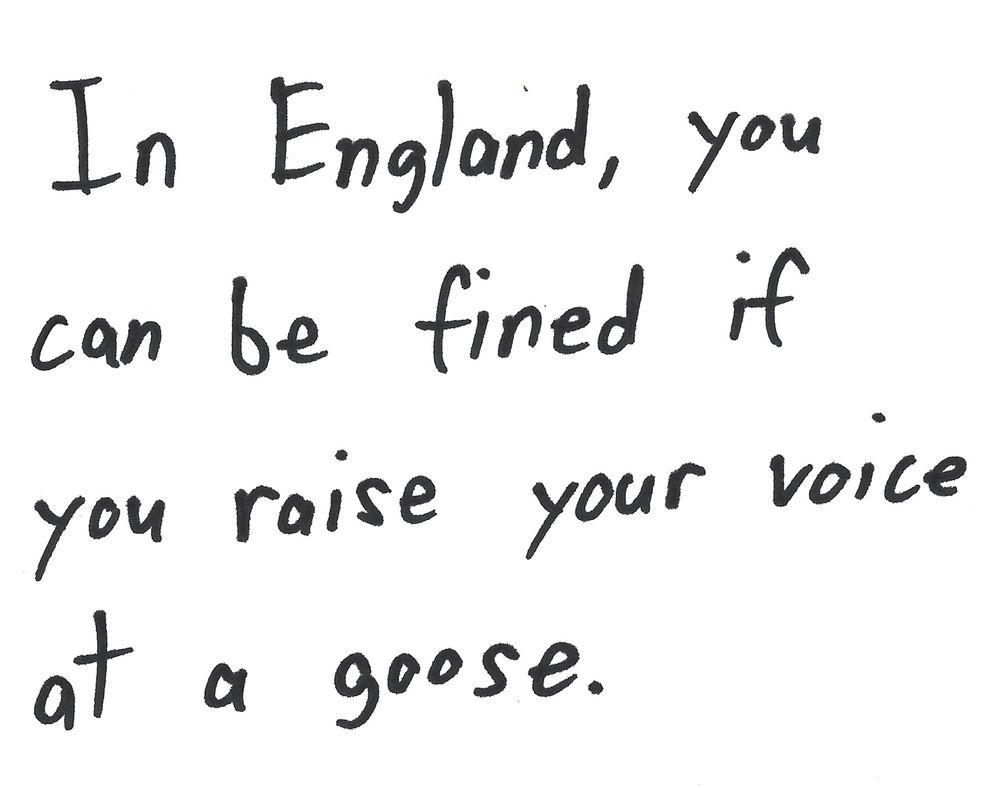 In England, you
can be fined if
you raise your voice
at a goose.